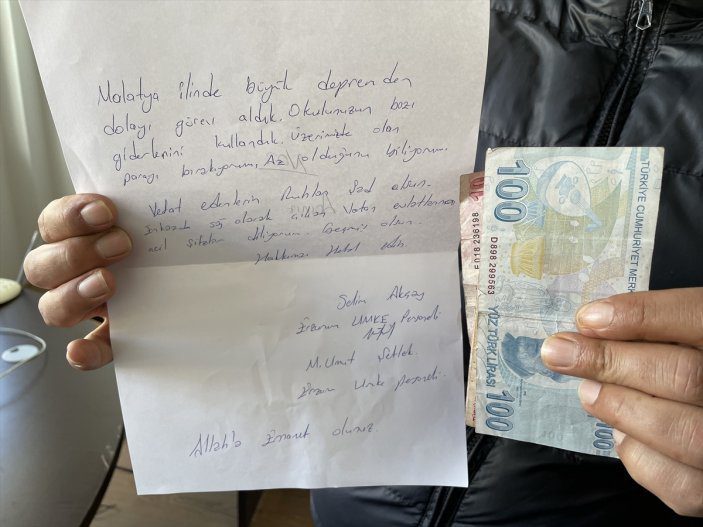 Malatya ilinde büyük depremden
dolayı görev aldık. Okulunuzun bazı
giderlerini kullandık. Üzerimizde olan
parayı bırakıyorum. Az olduğunu biliyorum.
Vefat edenlerin Ruhları Şad olsun.
Enkazdan sağ olarak çıkan Vatan evlatlarına
acil şifalar diliyorum. Geçmiş olsun.
Hakkınızı Helal edin.
Selim Akçay
Erzurum UMKE Personeli
M. Ümit
Erzurum Umke Personeli
Allah'a Emanet olunuz.
100
TÜRKİYE CUMHURİYET MERK
D898 299563
YÜZ TÜRK LİRASI
100
100
10
E018 236198